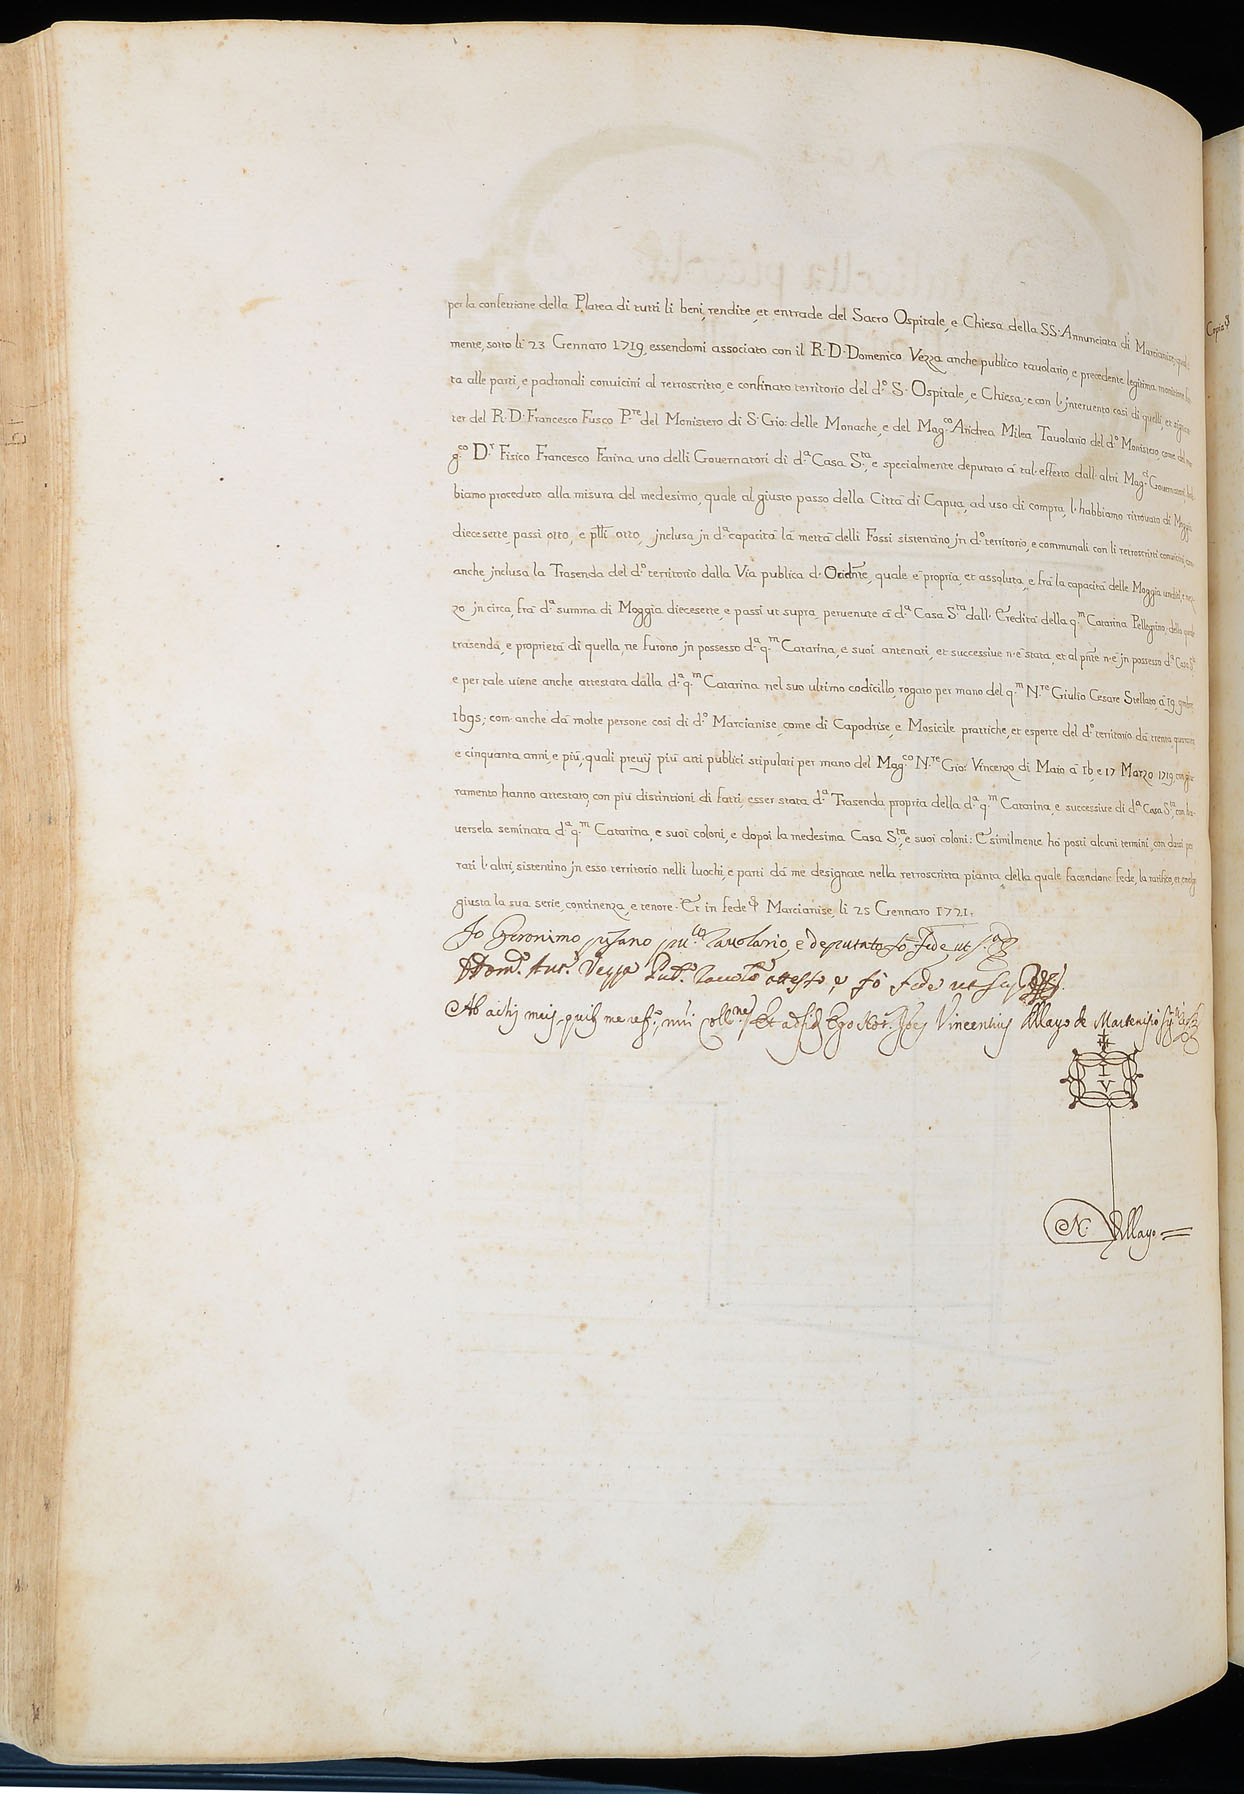 per la confettione della Platea di tutti li beni, rendite, et entrade del Sacro Ospitale, e Chiesa della SS. Annunciata di Marcianise, qual-
mente, sotto li 23 Gennaro 1719, essendomi associato con il R. D. Domenico Vezza anche publico tavolario, e precedente legitima monitione
ta alle parti, e padronali convicini al retroscritto, e confinato territorio del d.º S. Ospitale, e Chiesa, e con l'jntervento così di quelli, et
ter del R. D. Francesco Fusco P.re del Monistero di S. Gio: delle Monache, e del Mag.co Andrea Milea Tavolario del d.º Monistero, come del
g.co D.r Fisico Francesco Farina uno delli Governatori di d.a Casa S.ta, e specialmente deputato à tal' effetto dall' altri Mag.ci Governatori, hab-
biamo proceduto alla misura del medesimo, quale al giusto passo della Città di Capua, ad uso di compra, l'habbiamo ritrovato di Moggia
diecesette, passi otto, e otto, jnclusa jn d.a capacità la mettà delli Fossi sistentino jn d.º territorio, e communali con li retroscritti convicini, con
anche jnclusa la Trasenda del d.º territorio dalla Via publica d' quale è propria, et assoluta, e frà la capacità delle Moggia undici, e mez-
zo jn circa, frà d.a summa di Moggia diecesette, e passi ut supra, pervenute à d.a Casa S.ta dall' Eredità della q.m Catarina Pellegrino, della quale
trasenda, e proprietà di quella, ne furono jn possesso d.a q.m Catarina, e suoi antenati, et successive n' è stata, et al pnte n' è jn possesso d.a Casa S.ta
e per tale viene anche attestata dalla d.a q.m Catarina nel suo ultimo codicillo, rogato per mano del q.m N.re Giulio Cesare Stellato, à 19. 9mbre
1695; com' anche dà molte persone così di d.º Marcianise, come di Capodrise, e Mosicile prattiche, et esperte del d.º territorio dà trenta, quaranta
e cinquanta anni, e più, quali previj più atti publici stipulati per mano del Mag.co N.re Gio: Vincenzo di Maio à 16, e 17 Marzo 1719, con giu-
ramento hanno attestato, con più distintioni di fatti esser stata d.a Trasenda propria della d.a q.m Catarina, e successive di d.a Casa S.ta, con ha-
versela seminata d.a q.m Catarina, e suoi coloni, e dopoi la medesima Casa S.ta, e suoi coloni: E similmente hò posti alcuni termini,
rati l'altri, sistentino jn esso territorio nelli luochi, e parti dà me designate nella retroscritta pianta, della quale facendone fede, la ratifico, et
giusta la sua serie, continenza, e tenore. Et in fede Marcianise, li 25 Gennaro 1721.
Jo Geronimo pu.co Tavolario, e deputato fò fede ut s.a
Dom.co Ant.o Vezza Pub.co attesto, e fò fede ut sup.a
Ab actis meis, Et ad fidem Ego Not. Joes Vincentius Mayo de
I V
N. Mayo
Copia